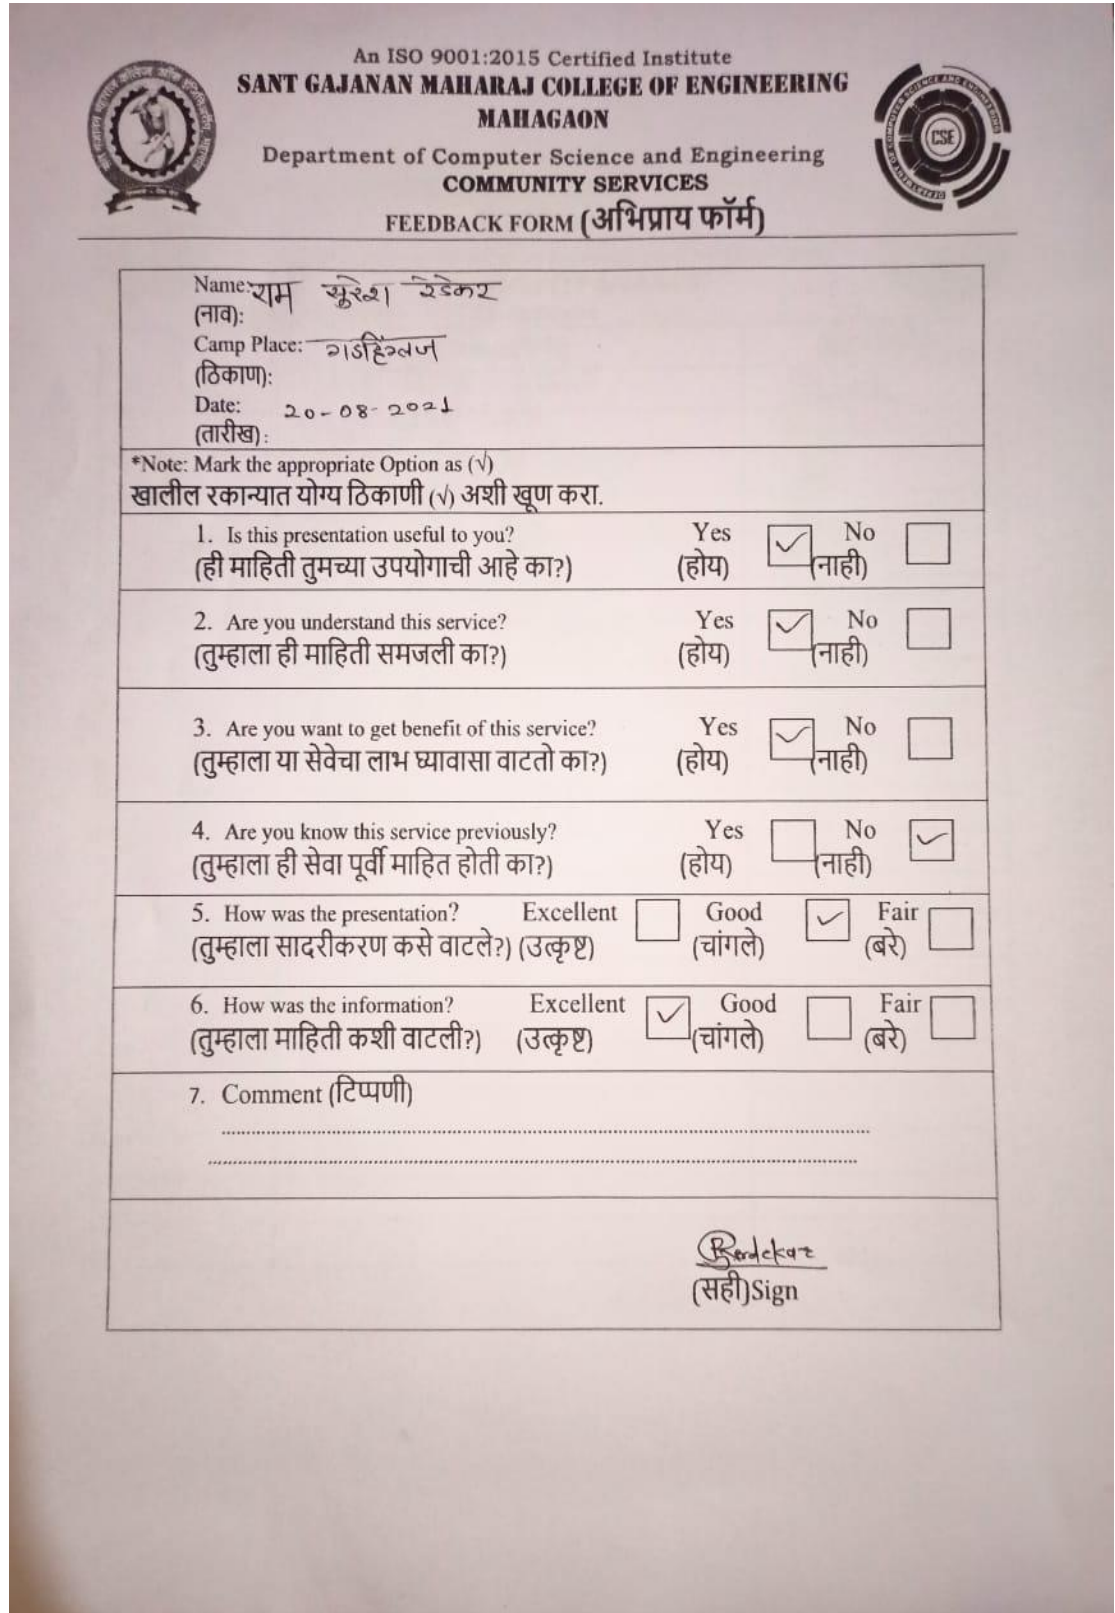 An ISO 9001:2015 Certified Institute
SANT GAJANAN MAHARAJ COLLEGE OF ENGINEERING
MAHAGAON
Department of Computer Science and Engineering
COMMUNITY SERVICES
FEEDBACK FORM (अभिप्राय फॉर्म)
CSE
Name: राम सुरेश रेडेकर
(नाव):
Camp Place: गडहिंग्लज
(ठिकाण):
Date: 20-08-2021
(तारीख):
*Note: Mark the appropriate Option as (√)
खालील रकान्यात योग्य ठिकाणी (√) अशी खूण करा.
1. Is this presentation useful to you? Yes ✓ No
(ही माहिती तुमच्या उपयोगाची आहे का?) (होय) (नाही)
2. Are you understand this service? Yes ✓ No
(तुम्हाला ही माहिती समजली का?) (होय) (नाही)
3. Are you want to get benefit of this service? Yes ✓ No
(तुम्हाला या सेवेचा लाभ घ्यावासा वाटतो का?) (होय) (नाही)
4. Are you know this service previously? Yes No ✓
(तुम्हाला ही सेवा पूर्वी माहित होती का?) (होय) (नाही)
5. How was the presentation? Excellent Good ✓ Fair
(तुम्हाला सादरीकरण कसे वाटले?) (उत्कृष्ट) (चांगले) (बरे)
6. How was the information? Excellent ✓ Good Fair
(तुम्हाला माहिती कशी वाटली?) (उत्कृष्ट) (चांगले) (बरे)
7. Comment (टिप्पणी)
(सही)Sign